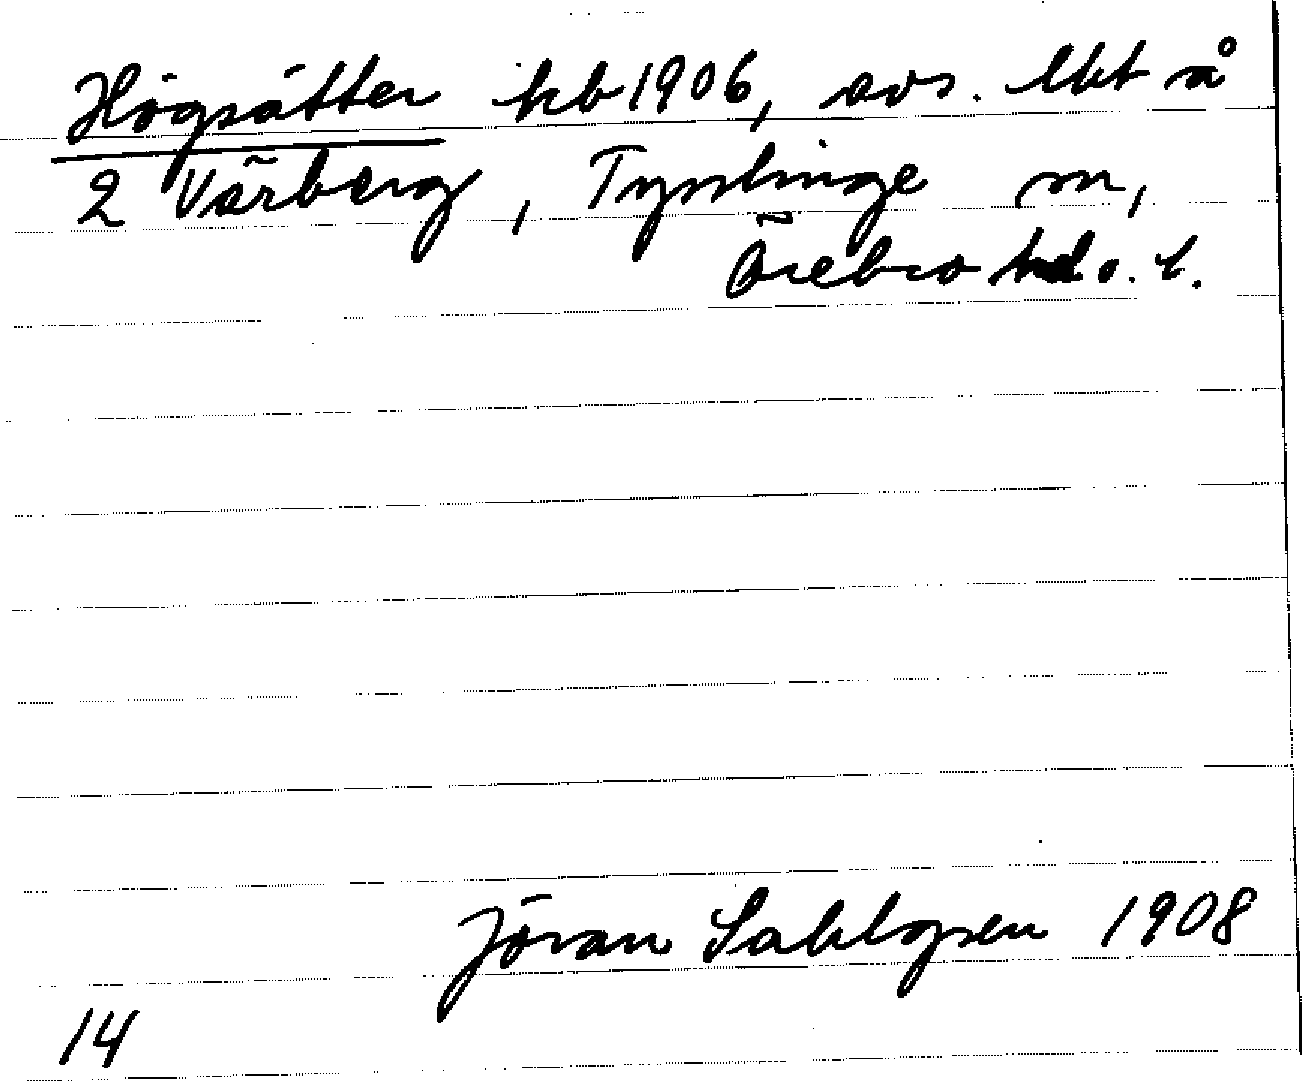 Högsätter kb 1906, avs. lht å
2 Värberg, Tysslinge sn,
Örebro hd o. l.
Jöran Sahlgren 1908
14